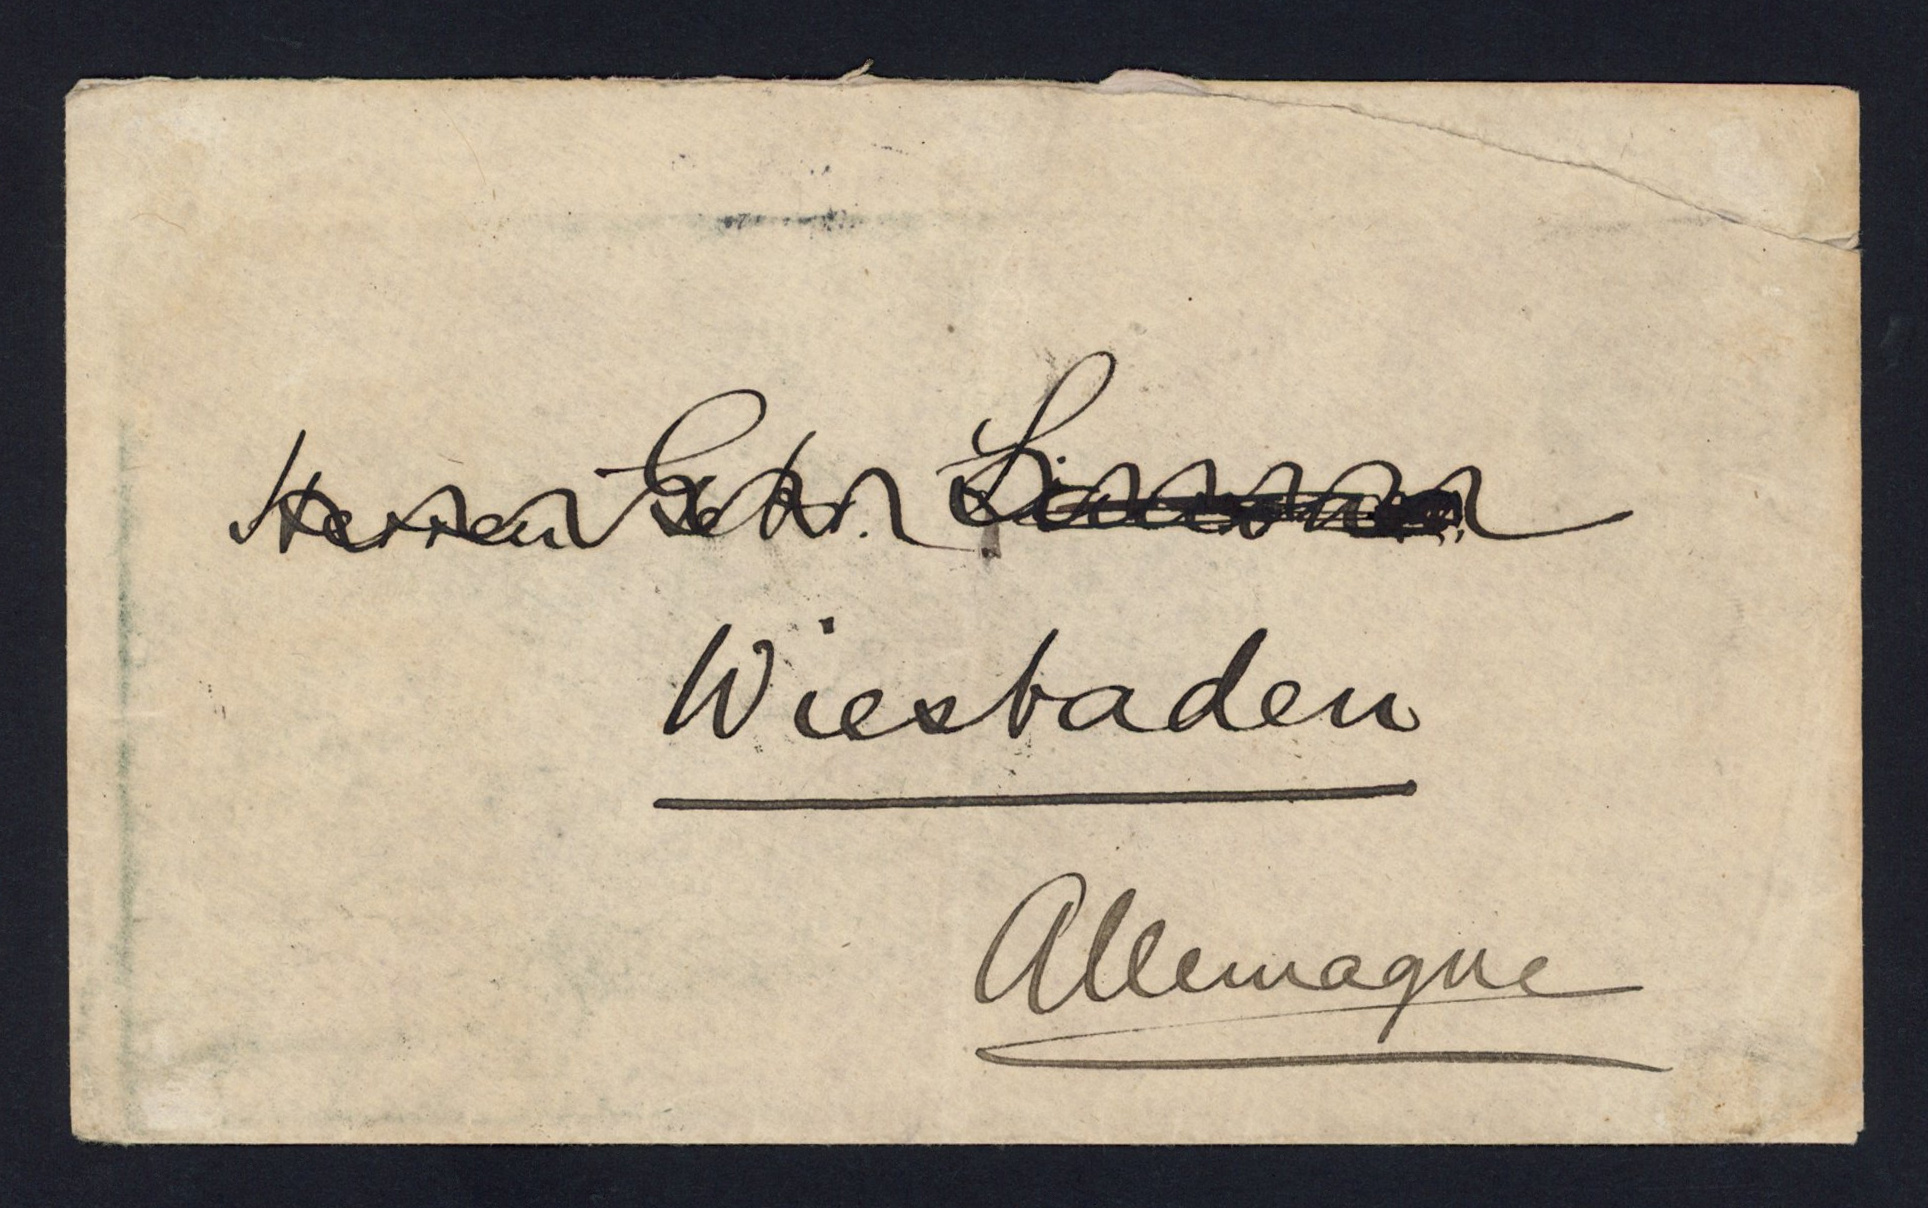 Herren Gebr.
Wiesbaden
Allemagne